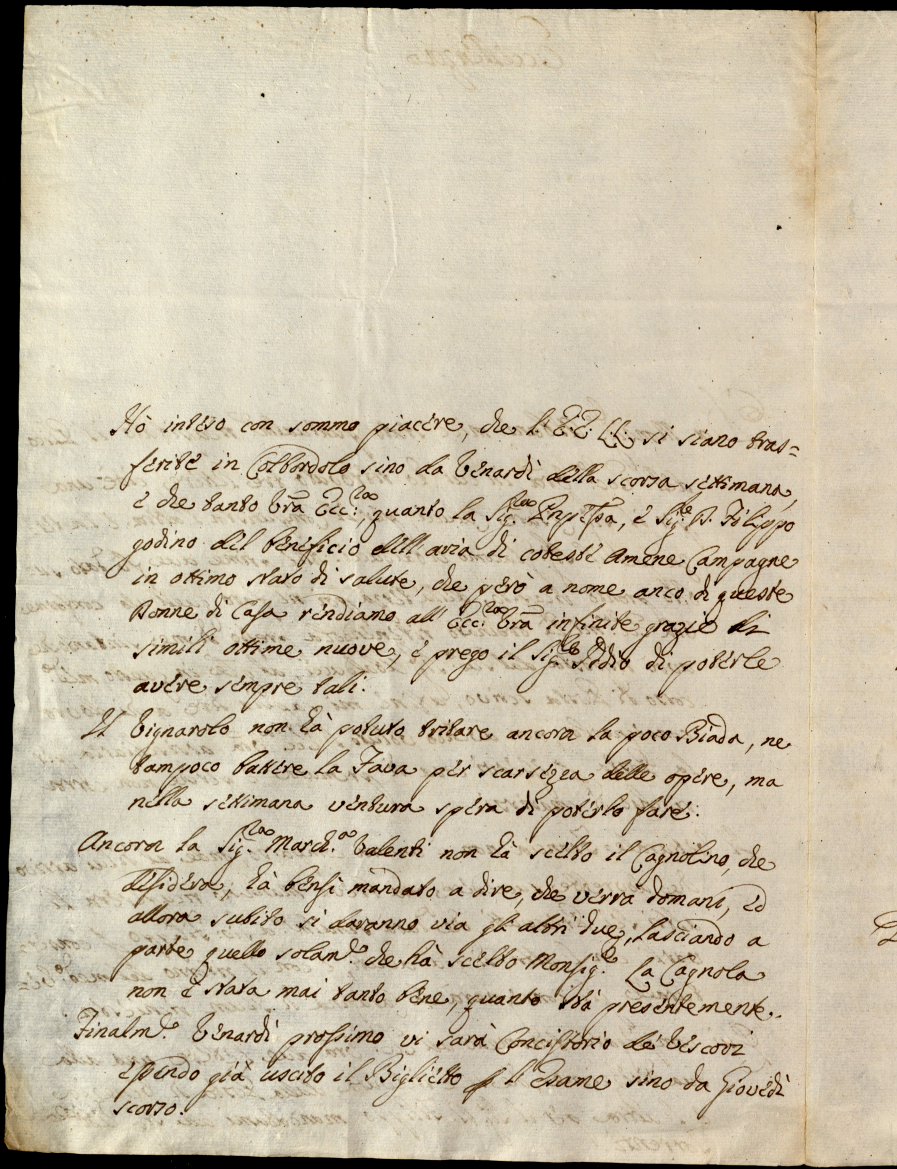 Hò inteso con sommo piacere, che l'E.E. LL. si siano tras=
ferite in Colbordolo sino da Venardi della scorsa settimana,
e che tanto Vrã Ecc.za, quanto la Sig.ra Enrichetta, e Sig.re D. Filippo
godino del beneficio dell'aria di coteste amene Campagne
in ottimo stato di salute, che però a nome anco di queste
Donne di Casa rendiamo all'Ecc.za Vrã infinite grazie di
simili ottime nuove, e prego il Sig.re Iddio di poterle
avere sempre tali.
Il Vignarolo non hà potuto tritare ancora la poco Biada, ne
tampoco battere la Fava per scarsezza delle opere, ma
nella settimana ventura spera di poterlo fare.
Ancora la Sig.ra March.a Valenti non hà scelto il Cagnolino, che
desidera, hà bensì mandato a dire, che verrà domani, ed
allora subito si daranno via gli altri due, lasciando a
parte quello solam.te che hà scelto Monsig.re La Cagnola
non è stata mai tanto bene, quanto stà presentemente.
Finalm.te Venardi prossimo vi sarà Concistorio de Vescovi
essendo già uscito il Biglietto p l'Esame sino da Giovedì
scorso.